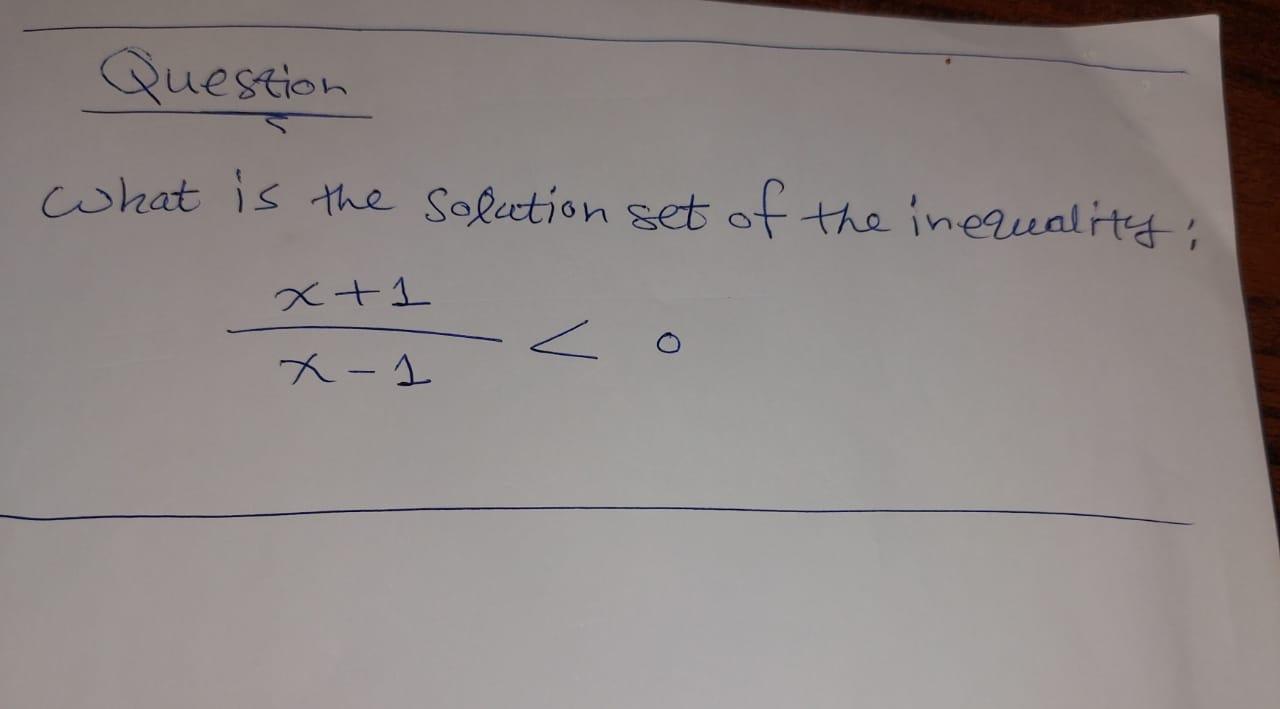 Question
What is the solution set of the inequality;
x+1
x-1 < 0